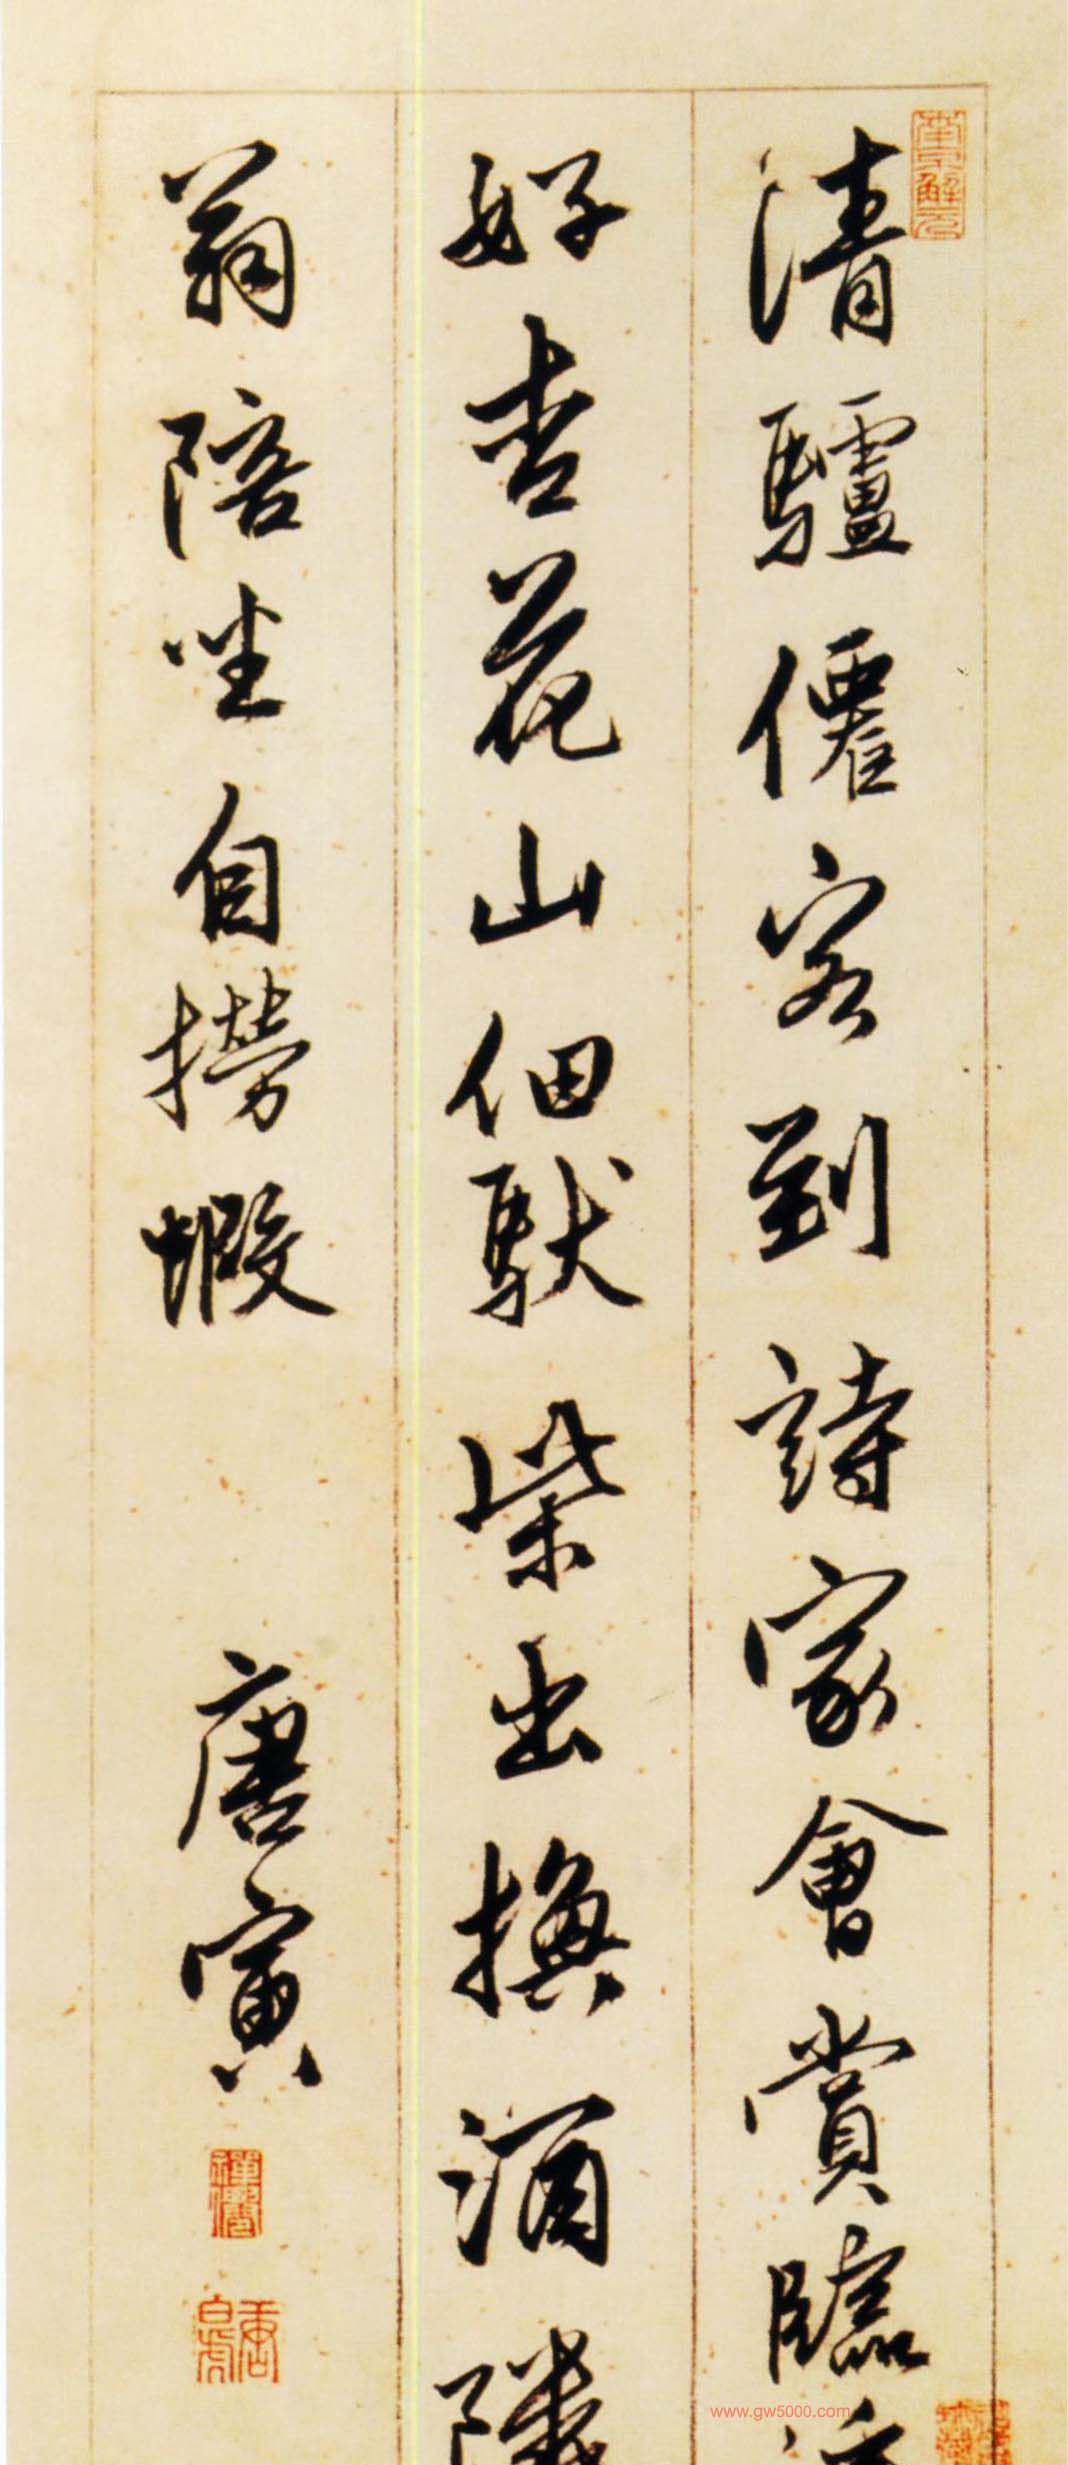 清驢僊客到詩家會賞臨
好杏花山佃馱柴出換酒隣
翁陪坐自撈蝦
唐寅
南京解元
www.gw5000.com